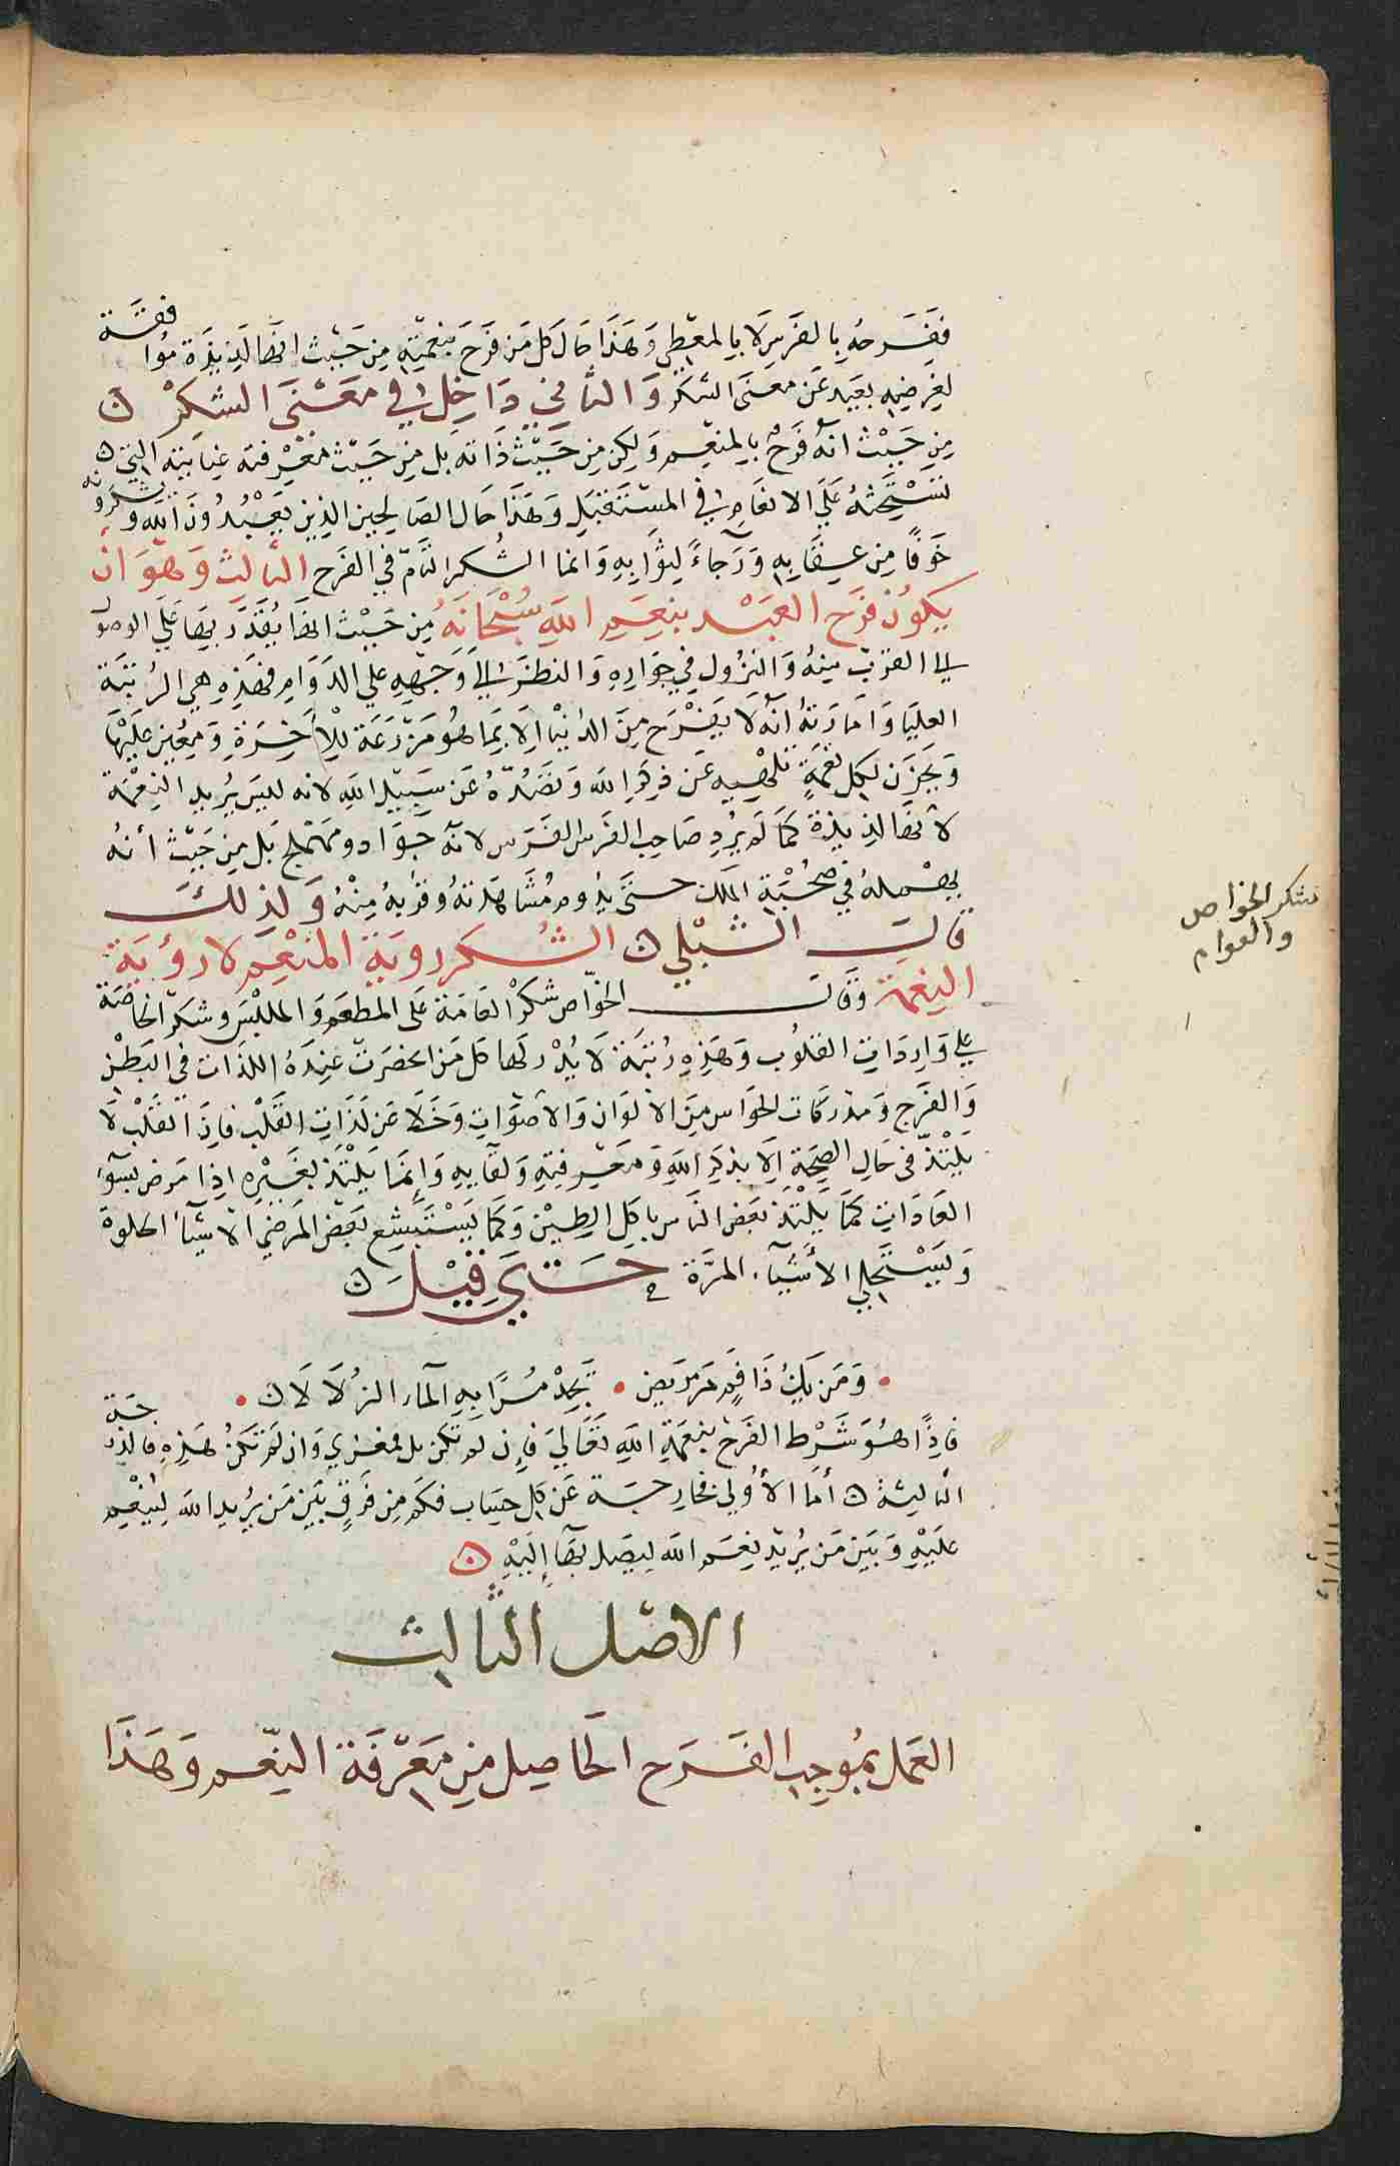 ففرحه بالفرس لا بالمعطي وهذا حال كل من فرح بنعمته من حيث انها لذيذة موافقة
لغرضه بعيد عن معنى الشكر والثاني داخل في معنى الشكر ن
من حيث انه فرح بالمنعم ولكن لا من حيث ذاته بل من حيث معرفته عنايته التي
تستحثه على الانعام في المستقبل وهذا حال الصالحين الذين يعبدون الله ويشكرونه
خوفا من عقابه ورجاء لثوابه وانما الشكر التام في الفرح الثالث وهو ان
يكون فرح العبد بنعم الله سبحانه من حيث انها يقدر بها على الوصول
الى القرب منه والنزول في جواره والنظر الى وجهه على الدوام فهذه هي الرتبة
العليا وامارته انه لا يفرح من الدنيا الا بما هو مزرعة للآخرة ومعين عليها
ويحزن لكل نعمة تلهيه عن ذكر الله وتصده عن سبيل الله لانه ليس يريد النعمة
لانها لذيذة كما لم يرد صاحب الفرس الفرس لانه جواد ومهملج بل من حيث أنه
يحمله في صحبة الملك حتى يدوم مشاهدته وقربه منه ولذلك
قال الشبلي ن الشكر روية المنعم لا رؤية
النعمة وقال الخواص شكر العامة على المطعم والملبس وشكر الخاصة
على واردات القلوب وهذه رتبة لا يدركها كل من انحصرت عنده اللذات في البطن
والفرج ومدركات الحواس من الالوان والاصوات وخلا عن لذات القلب فان القلب لا
يلتذ في حال الصحة الا بذكر الله ومعرفته ولقايه وإنما يلتذ بغيره اذا مرض بسوء
العادات كما يلتذ بعض الناس باكل الطين وكما يستبشع بعض المرضى الاشياء الحلوة
ويستحلي الأشياء المرة حتى قيل ن
ومن يك ذا فم مر مريض • يجد مرا به الماء الزلالا ن •
فاذا هو شرط الفرح بنعمة الله تعالى فإن لم تكن بل فمعزي وان لم تكن هذه فالدرجة
الثالثة ن أما الأولى فخارجة عن كل حساب فكم من فرق بين من يريد الله لينعم
عليه وبين من يريد نعم الله ليصل بها إليه ن
الاصل الثالث
العمل بموجب الفرح الحاصل من معرفة النعم وهذا
شكر الخواص
والعوام